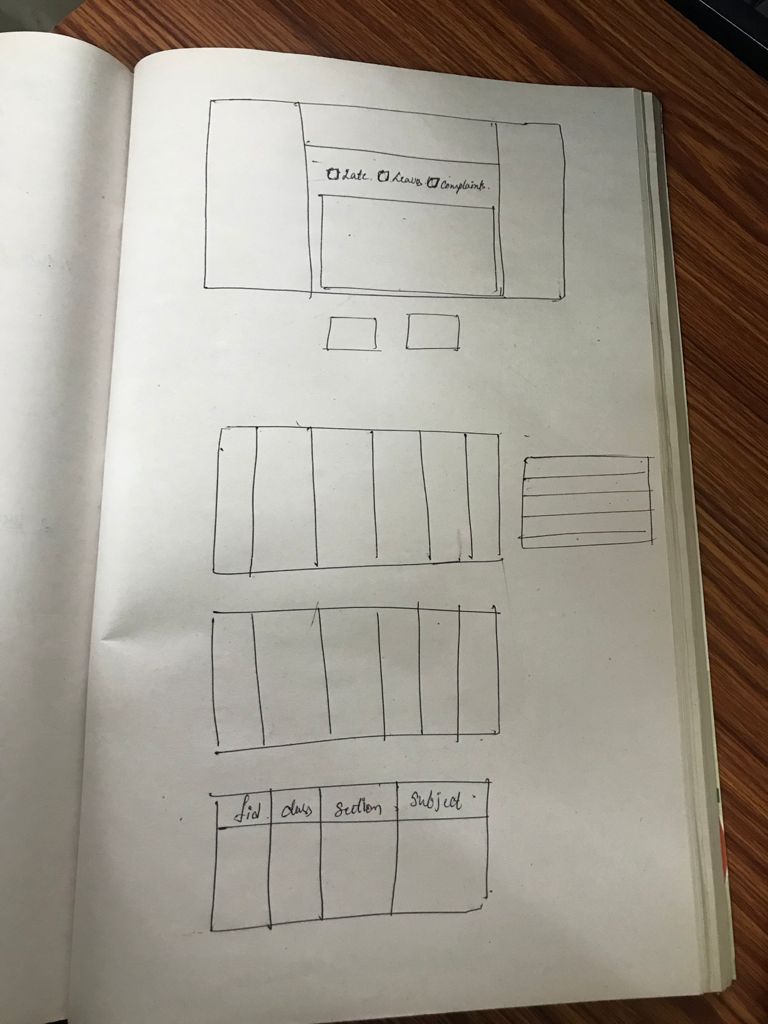 Late. Leave Complaint.
fid class section subject.